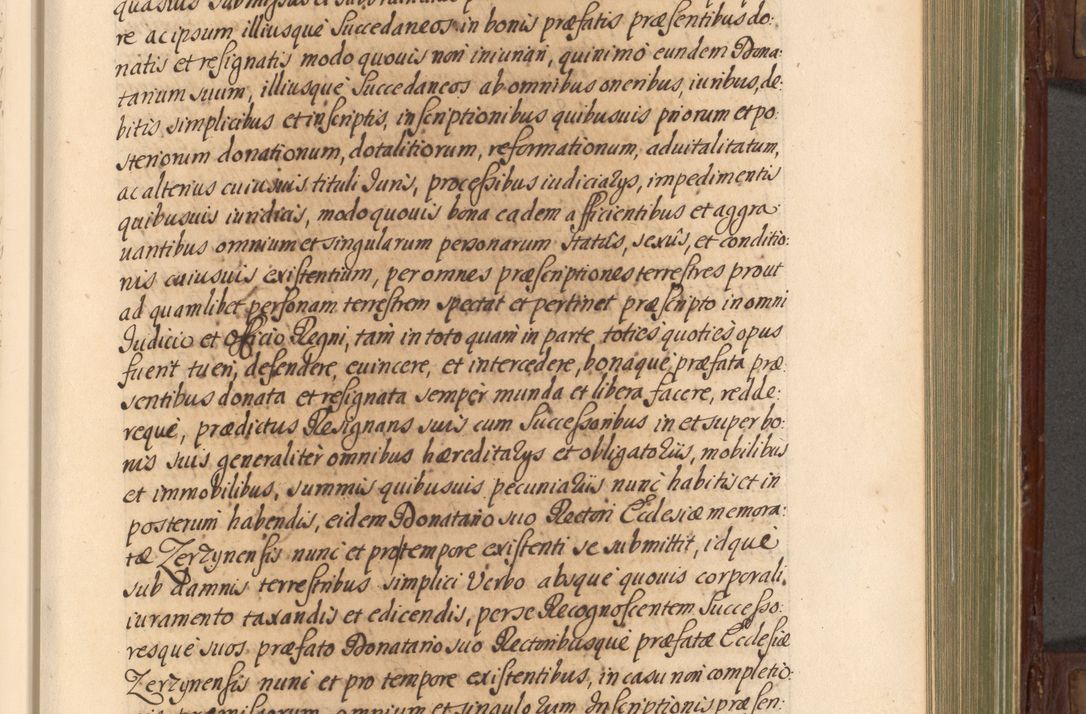 re ac ipsum illiusque Succedaneos in bonis præfatis præsentibus do:
natis et resignatis modo quovis non iniunan, quinimo eundem Dona:
tarium suum, illiusque Succedaneos ab omnibus oneribus, iuribus, de:
bitis simplicibus et inscriptis, inscriptionibus quibusuis priorum et po:
steriorum donationum, dotalitiorum, reformationum, aduitalitatum,
ac alterius cuiusuis tituli Iuris, processibus iudiciarys, impedimentis
quibusuis iuridicis, modo quouis bona eadem afficientibus et aggra:
uantibus omnium et singularum personarum Statûs, sexûs, et conditio:
nis cuiusuis existentium, per omnes præscriptiones terrestres prout
ad quamlibet personam terrestrem spectat et pertinet præscripto in omni
Iudicio et Officio Regni, tam in toto quam in parte toties quoties opus
fuerit tueri, defendere, euincere, et intercedere, bonaque præfata præ:
sentibus donata et resignata semper munda et libera facere, redde:
reque, prædictus Resignans suis cum Successoribus in et super bo:
nis suis generaliter omnibus hæreditarys et obligatorüs, mobilibus
et immobilibus, summis quibusuis pecuniarüs nunc habitis et in
posterum habendis, eidem Donatario suo Rectori Ecclesiæ memora:
tæ Zerzynensis nunc et pro tempore existenti se submittit, idque
sub damnis terrestribus simplici Verbo absque quouis corporali
iuramento taxandis et edicendis, per se Recognoscentem Successo:
resque suos præfato Donatario suo Rectoribusque præfatæ Ecclesiæ
Zerzynensis nunc et pro tempore existentibus, in casu non completio:
omnium et singulorum Inscriptionis præsen: